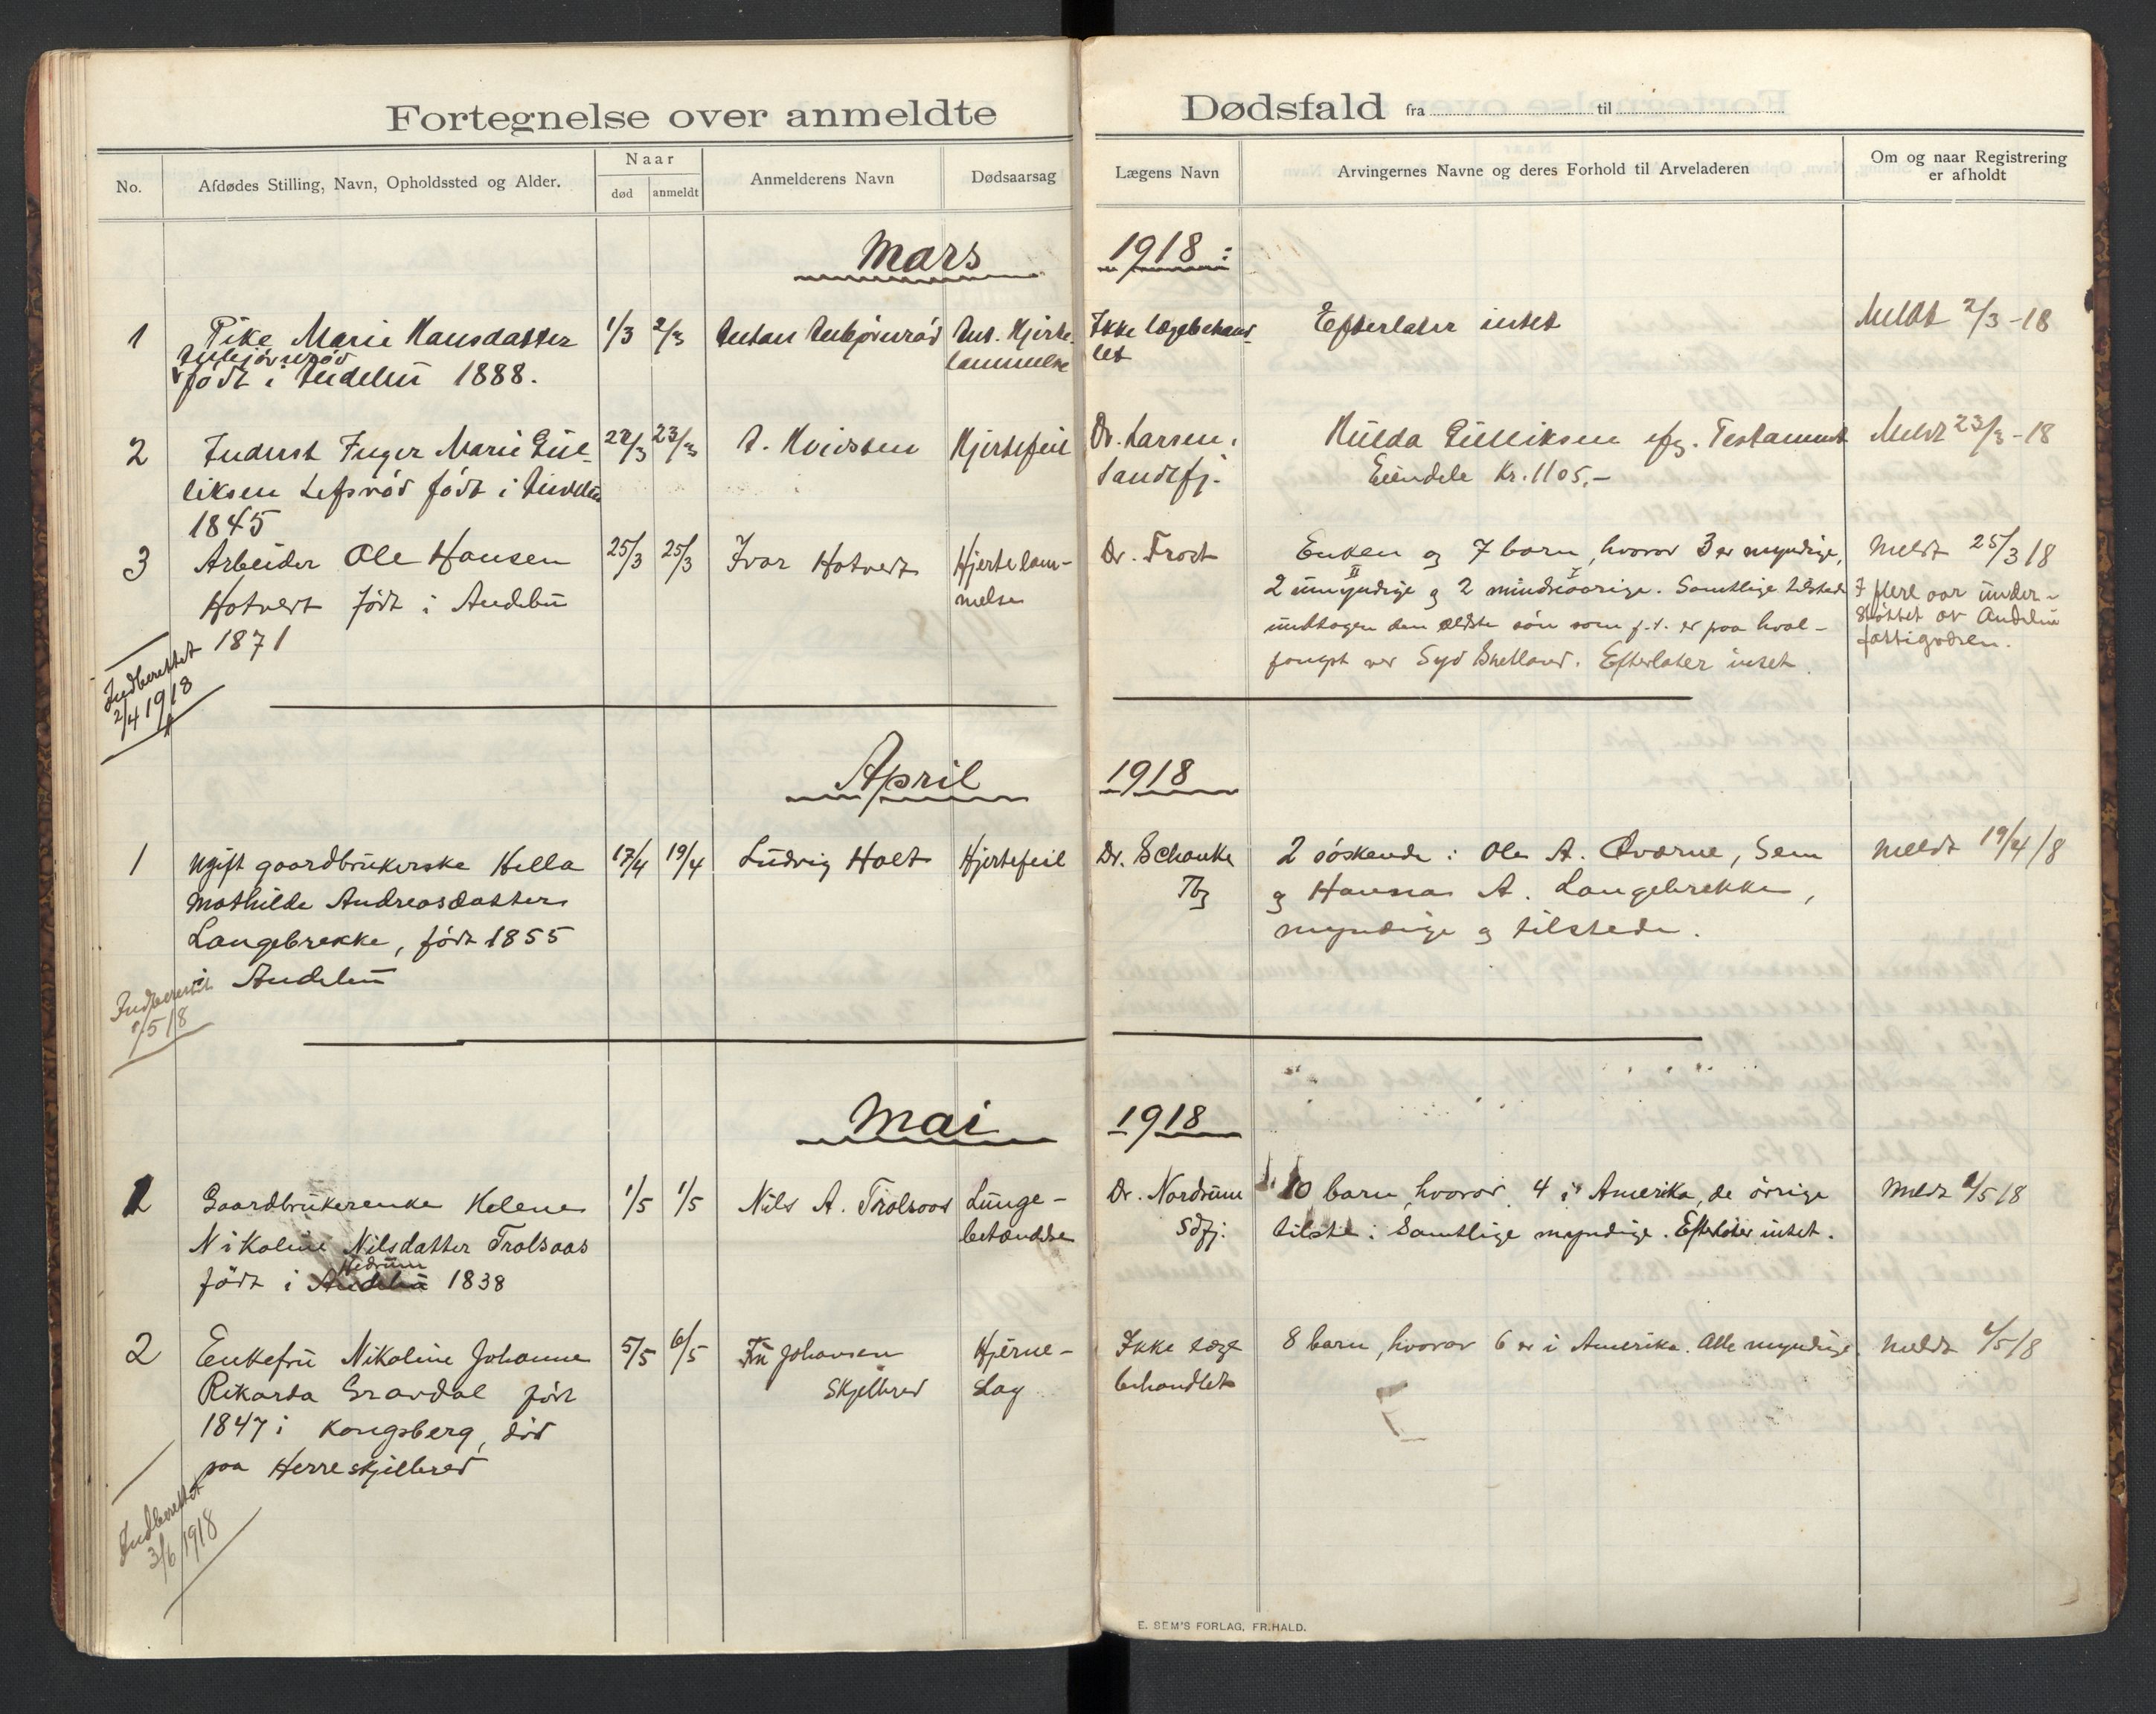 Fortegnelse over anmeldte Dødsfald fra til
No.
Afdødes Stilling, Navn, Opholdssted og Alder.
Naar
død
anmeldt
Anmelderens Navn
Dødsaarsag
Lægens Navn
Arvingernes Navne og deres Forhold til Arveladeren
Om og naar Registrering
er afholdt
Mars 1918:
1
Pike Marie Hansdatter
født i Andebu 1888.
1/3
2/3
Anton
Ant. Hjerte-
lammelse
Ikke lægebehand-
let
Efterlater intet
Meldt 2/3-18
2
Inderst Inger Marie Gul-
liksen født i Andebu
1845
22/3
23/3
A. Kvidsten
Hjertefeil
Dr. Larsen,
Sandefj.
Hulda Gulliksen efg. Testament
Eiendele Kr. 1105.-
Meldt 23/3-18
3
Arbeider Ole Hansen
Hotvedt født i Andebu
1871
25/3
25/3
Ivar Hotvedt
Hjertelam-
melse
Dr. Frost
Enken og 7 barn, hvorav 3 er myndige,
2 umyndige og 2 mindreaarige. Samtlige tilstede
undtagen den ældste søn som f.t. er paa hval-
fangst ved Syd Shetland. Efterlater intet.
Meldt 25/3 18
I flere aar under-
støttet av Andebu
fattigvæsen.
Indberettet
2/4 1918
April 1918
1
Ugift gaardbrukerske Hella
Mathilde Andreasdatter
Langebrekke, født 1855
i Andebu
17/4
19/4
Ludvig Holt
Hjertefeil
Dr. Schanke
Tbg
2 søskende: Ole A. Qværne, Sem
og Hanna A. Langebrekke,
myndige og tilstede.
Meldt 19/4 18
Indberettet
1/5 18
Mai 1918
1
Gaardbrukerenke Helene
Nikoline Nilsdatter Trolsaas
Hedrum
født i Andebu 1838
1/5
1/5
Nils A. Trolsaas
Lunge-
betændelse
Dr. Nordrum
Sdfj.
10 barn, hvorav 4 i Amerika, de övrige
tilste: Samtlige myndige. Efterlater intet.
Meldt 1/5 18
2
Enkefru Nikoline Johanne
Rikarda Gravdal født
1847 i Kongsberg, död
paa Herreskjelbred
5/5
6/5
Fru Johansen
Skjelbred
Hjerne-
slag
Ikke læge
behandlet
8 barn, hvorav 6 er i Amerika. Alle myndige
Meldt 6/5 18
Indberettet
3/6 1918
E. SEM'S FORLAG, FR.HALD.